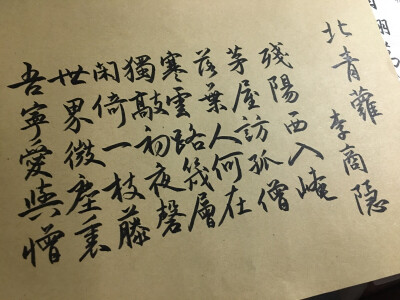 北青蘿 李商隱
殘陽西入崦
茅屋訪孤僧
落葉人何在
寒雲路幾層
獨敲初夜磬
閑倚一枝藤
世界微塵裏
吾寧愛與憎